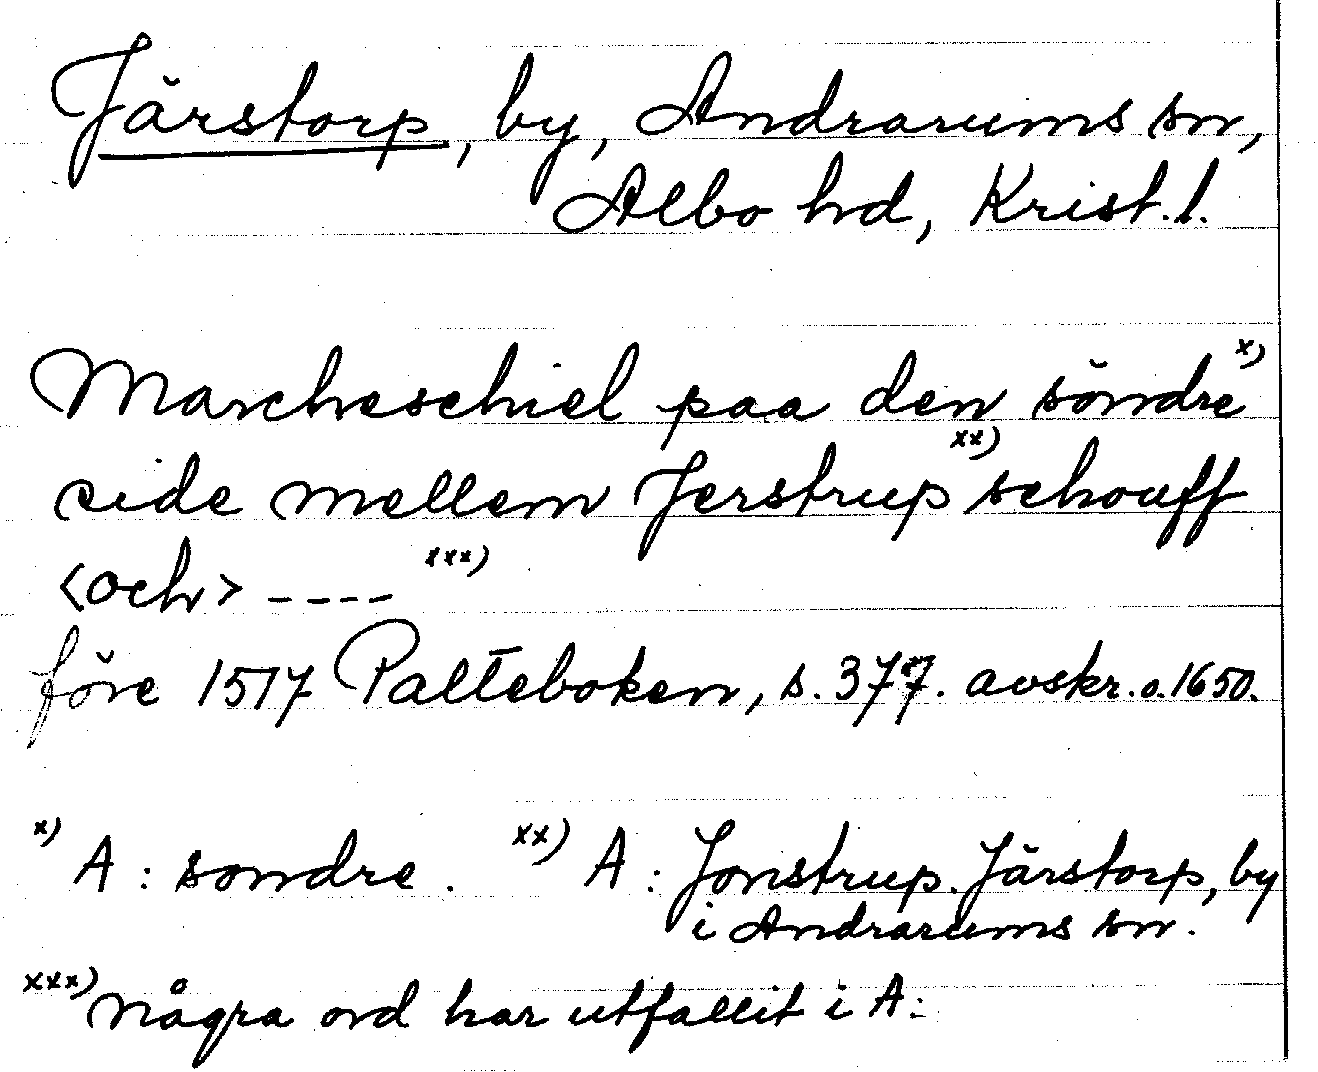 Järstorp, by, Andrarums sn,
Albo hd, Krist. l.
Marcheschiel paa den söndre x)
side mellem Jerstrup xx) schouff
<och> ---- xxx)
före 1517 Palteboken, s. 377. avskr. o. 1650.
x) A: sondre. xx) A: Jonstrup. Järstorp, by
i Andrarums sn.
xxx) Några ord har utfallit i A: